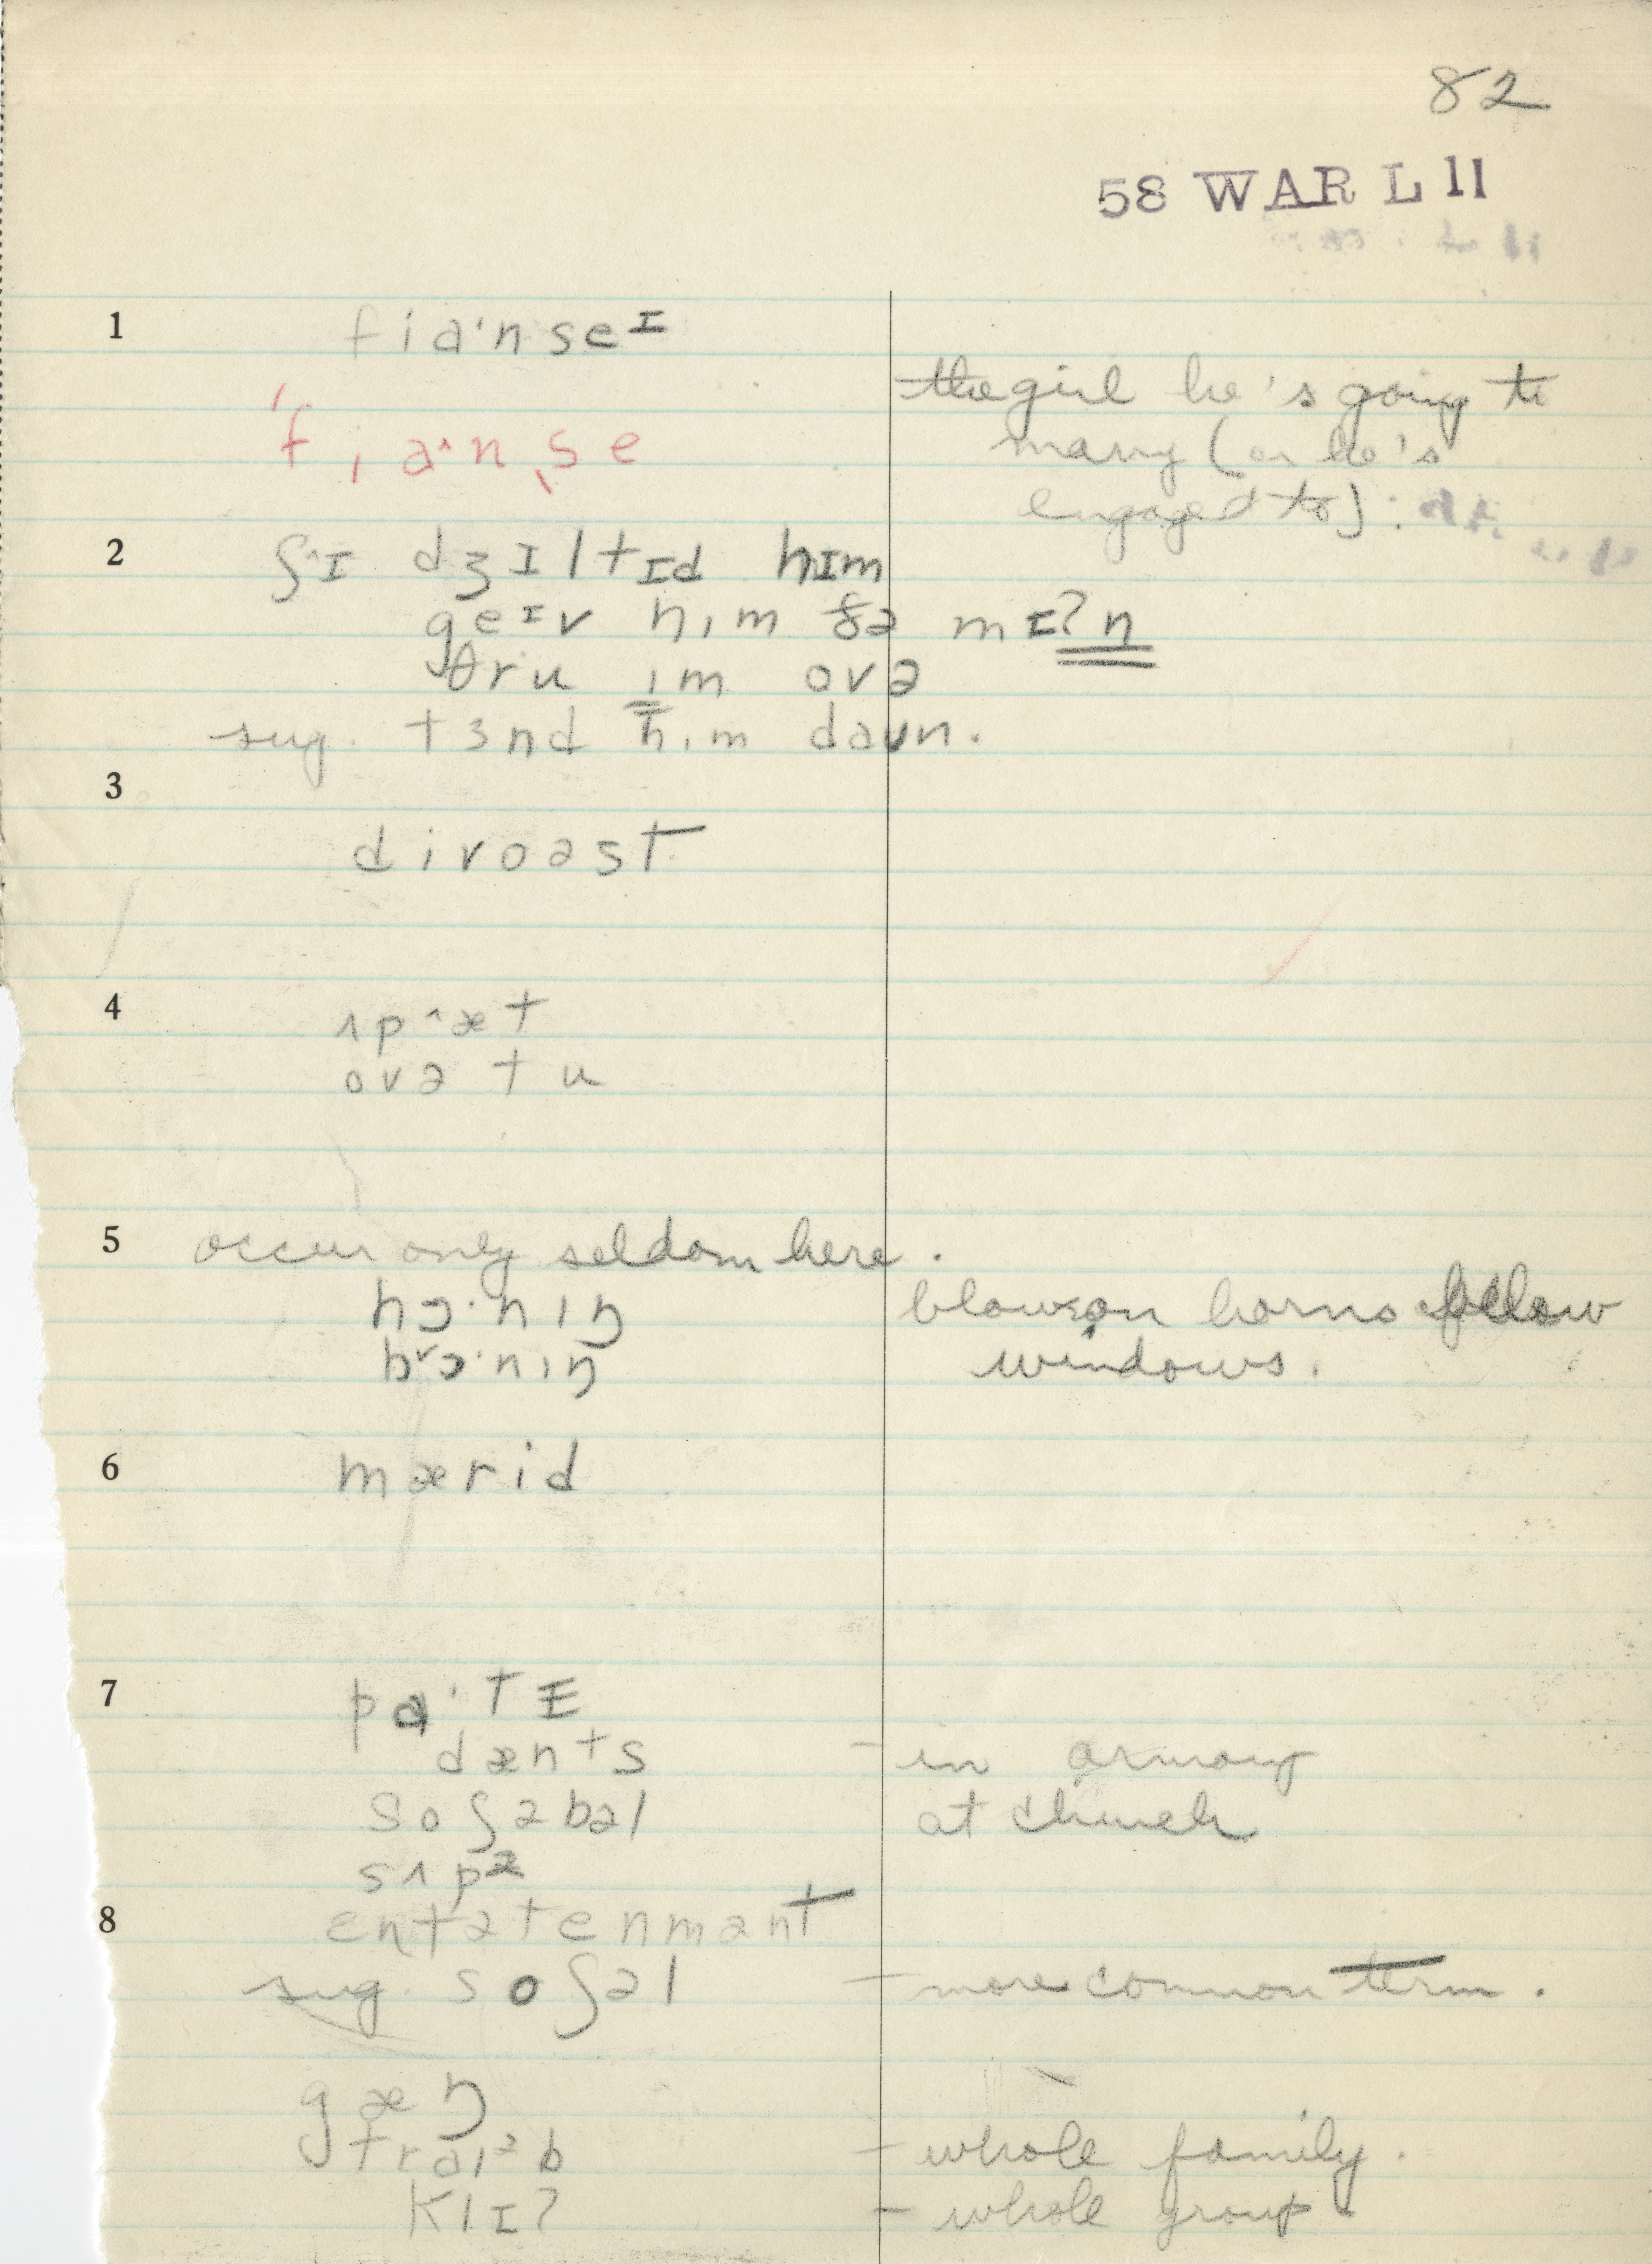 82
58 WAR L 11
1 fia'nseɪ
the girl he's going to
'fia^nse
marry (or he's
engaged to)
2 ʃ^ɪ dʒɪltɪd hɪm
geɪv hɪm ðə mɪʔn
θru ɪm ovə
sug. tɜnd hɪm daʊn.
3
divoəst
4 ʌp^æt
ovə tu
5 occur only seldom here.
hɔ·nɪŋ
horns follow
bᵛɔ·nɪŋ
windows.
6 mærid
7 pa'tɪ
dænts - in armory
soʃəbəl at church
sʌpə
8 entətenmənt
sug. soʃəl - more common term.
gæŋ
traɪəb - whole family.
klɪʔ - whole group